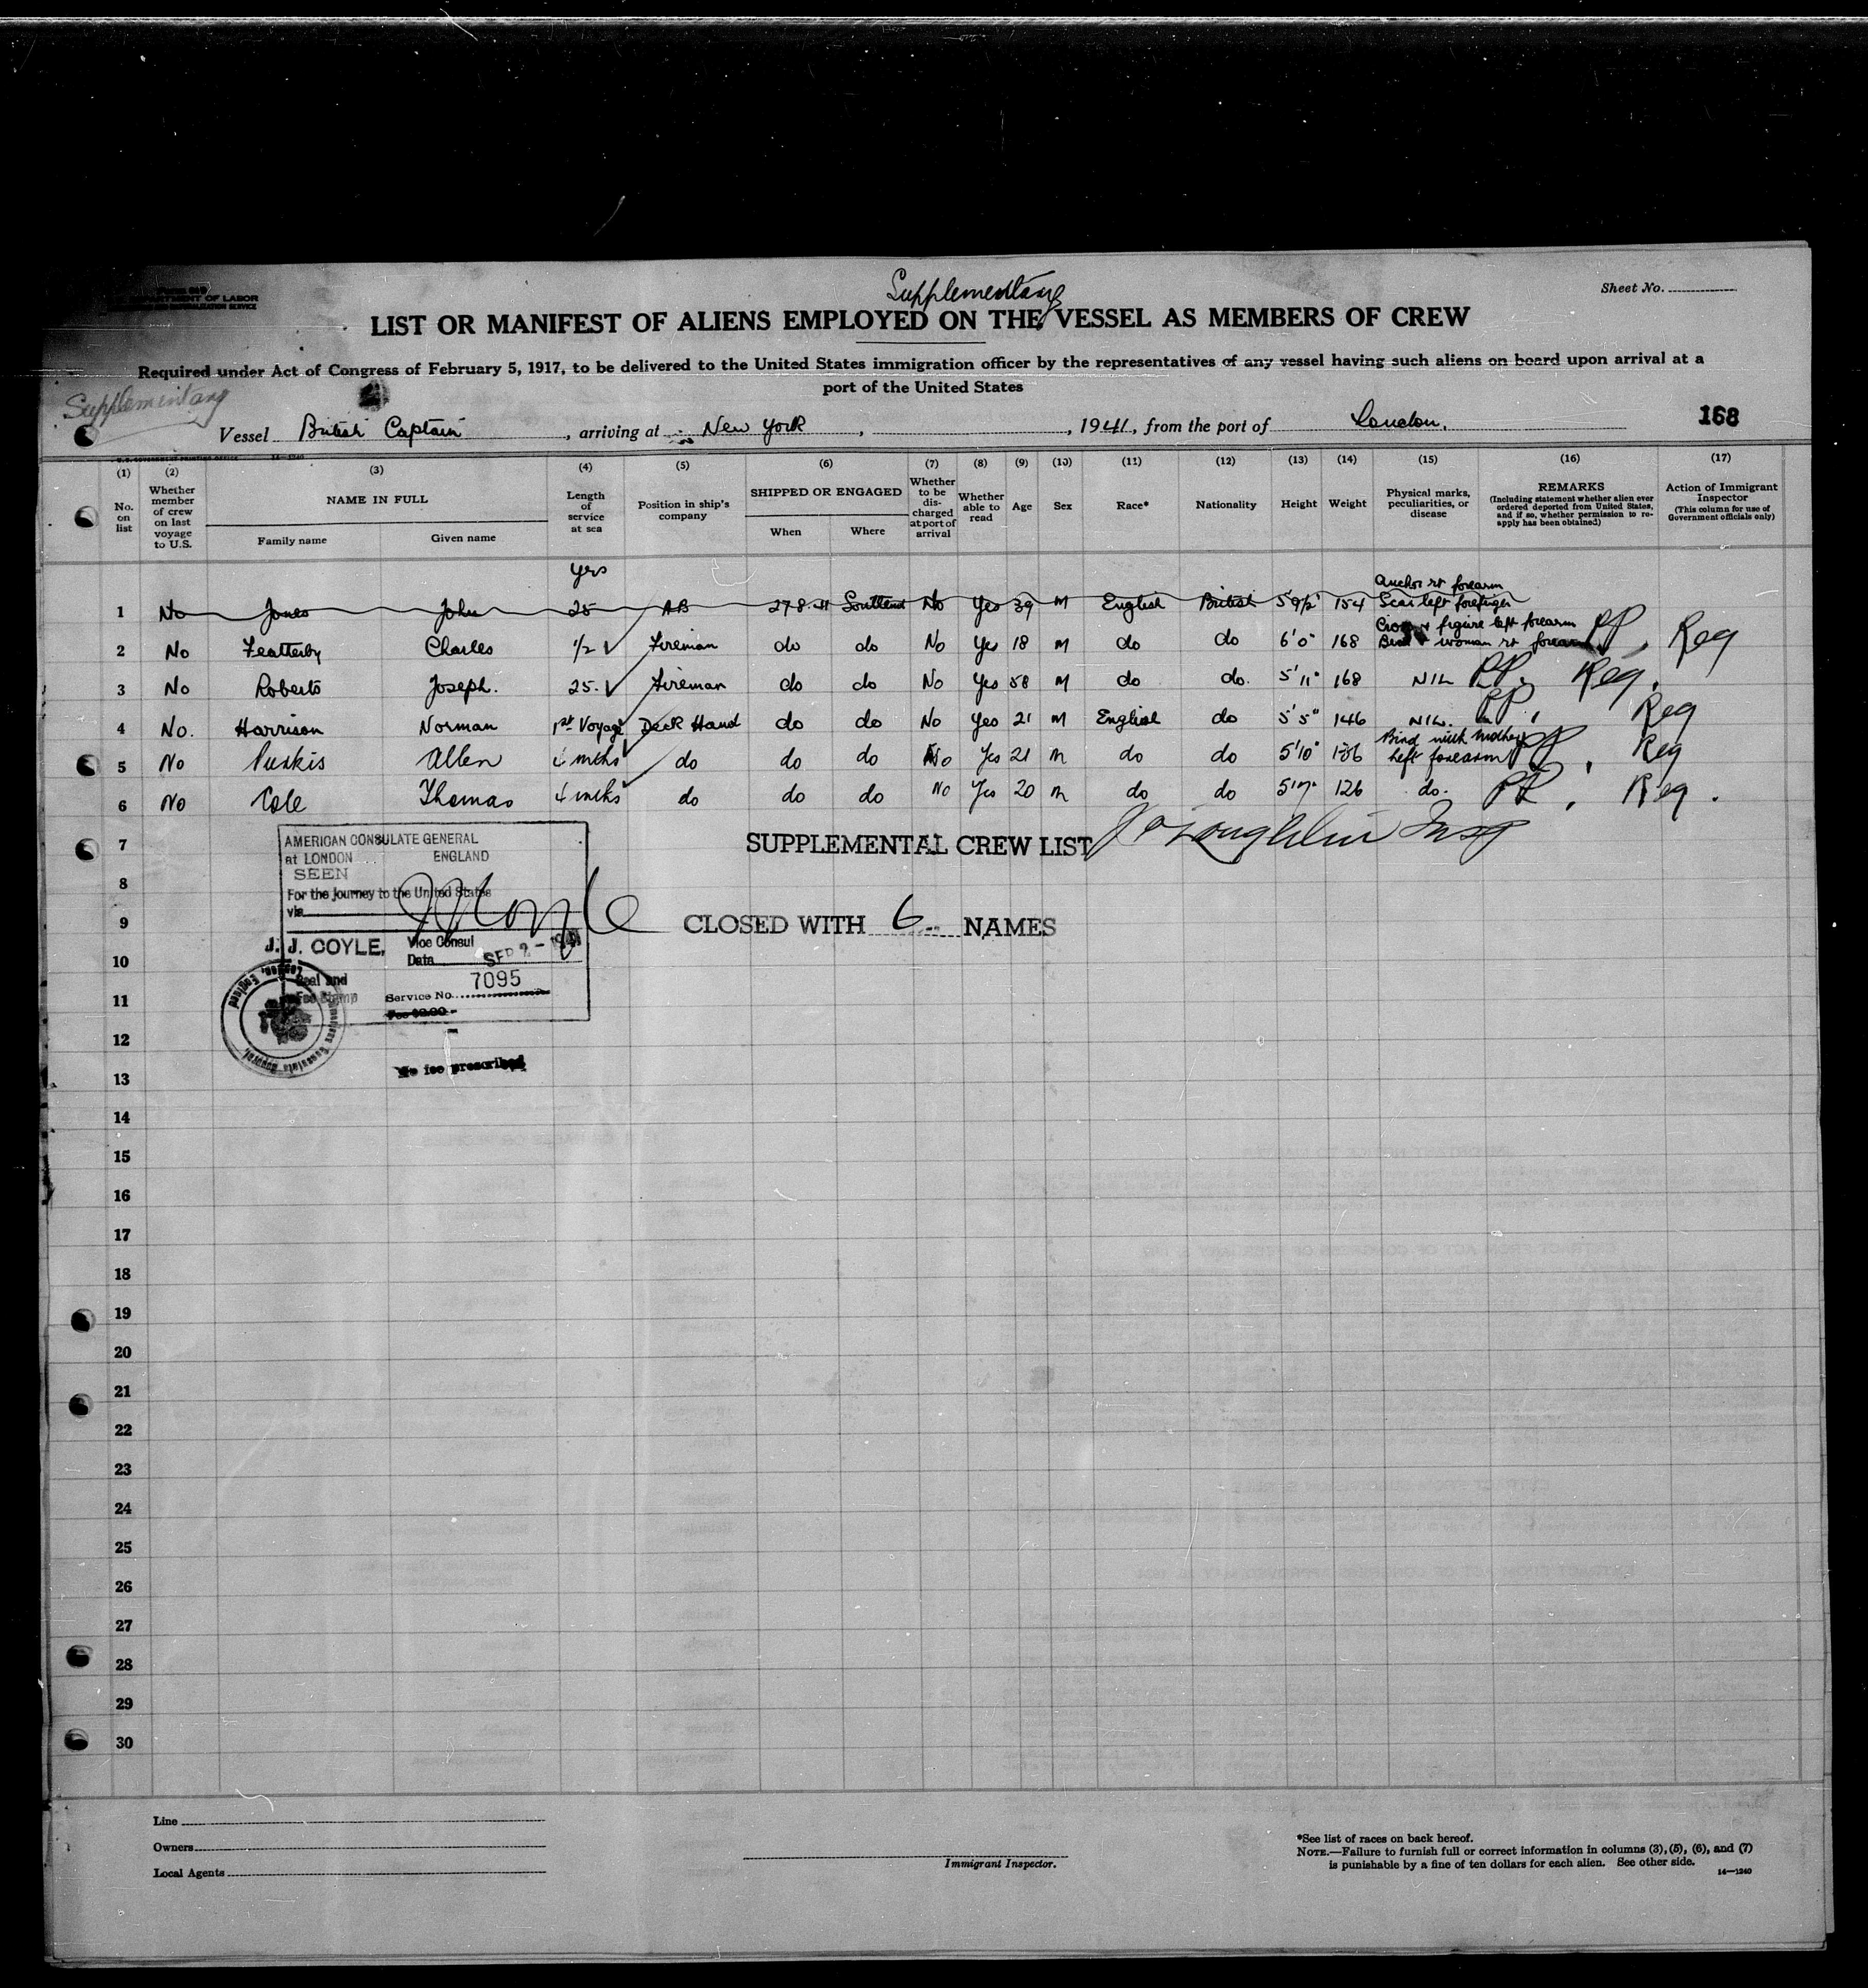 Supplementary
Sheet No.
DEPARTMENT OF LABOR
LIST OR MANIFEST OF ALIENS EMPLOYED ON THE VESSEL AS MEMBERS OF CREW
Required under Act of Congress of February 5, 1917, to be delivered to the United States immigration officer by the representatives of any vessel having such aliens on board upon arrival at a
port of the United States
Supplementary
168
Vessel British Captain, arriving at New York, , 1941, from the port of London.
U.S. GOVERNMENT PRINTING OFFICE 14—1240
(1) (2) (3) (4) (5) (6) (7) (8) (9) (10) (11) (12) (13) (14) (15) (16) (17)
No. on list
Whether member of crew on last voyage to U.S.
NAME IN FULL
Family name Given name
Length of service at sea
Position in ship's company
SHIPPED OR ENGAGED
When Where
Whether to be discharged at port of arrival
Whether able to read
Age
Sex
Race*
Nationality
Height
Weight
Physical marks, peculiarities, or disease
REMARKS
(Including statement whether alien ever ordered deported from United States, and if so, whether permission to reapply has been obtained)
Action of Immigrant Inspector
(This column for use of Government officials only)
yrs
1 No Jones John 25 AB 27.8.41 Southend No Yes 39 M English British 5'9½" 154 Anchor rt forearm Scar left forefinger
2 No Featterby Charles 1/2 Fireman do do No Yes 18 M do do 6'0" 168 figure left forearm woman rt forearm PP. Reg
3 No Roberts Joseph. 25. Fireman do do No Yes 58 M do do. 5'11" 168 NIL PP. Reg.
4 No. Harrison Norman 1st Voyage Deck Hand do do No Yes 21 M English do 5'5" 146 NIL. PP. Reg
5 No Purkis Allen 4 mths do do do No Yes 21 M do do 5'10" Bird with Mother left forearm PP. Reg
6 No Cole Thomas 4 mths do do do No Yes 20 M do do 5'7" 126 do. PP. Reg.
7 SUPPLEMENTAL CREW LIST J O'Loughlin Insp
8
9 CLOSED WITH 6 NAMES
10
11
12
13
14
15
16
17
18
19
20
21
22
23
24
25
26
27
28
29
30
AMERICAN CONSULATE GENERAL
at LONDON ENGLAND
SEEN
For the journey to the United States
via
J. J. COYLE, Vice Consul
Date SEP 2 - 1941
Seal and
Fee Stamp
Service No. 7095
Fee $2.00
No fee prescribed
Line
Owners
Local Agents
Immigrant Inspector.
*See list of races on back hereof.
NOTE.—Failure to furnish full or correct information in columns (3), (5), (6), and (7)
is punishable by a fine of ten dollars for each alien. See other side.
14—1240